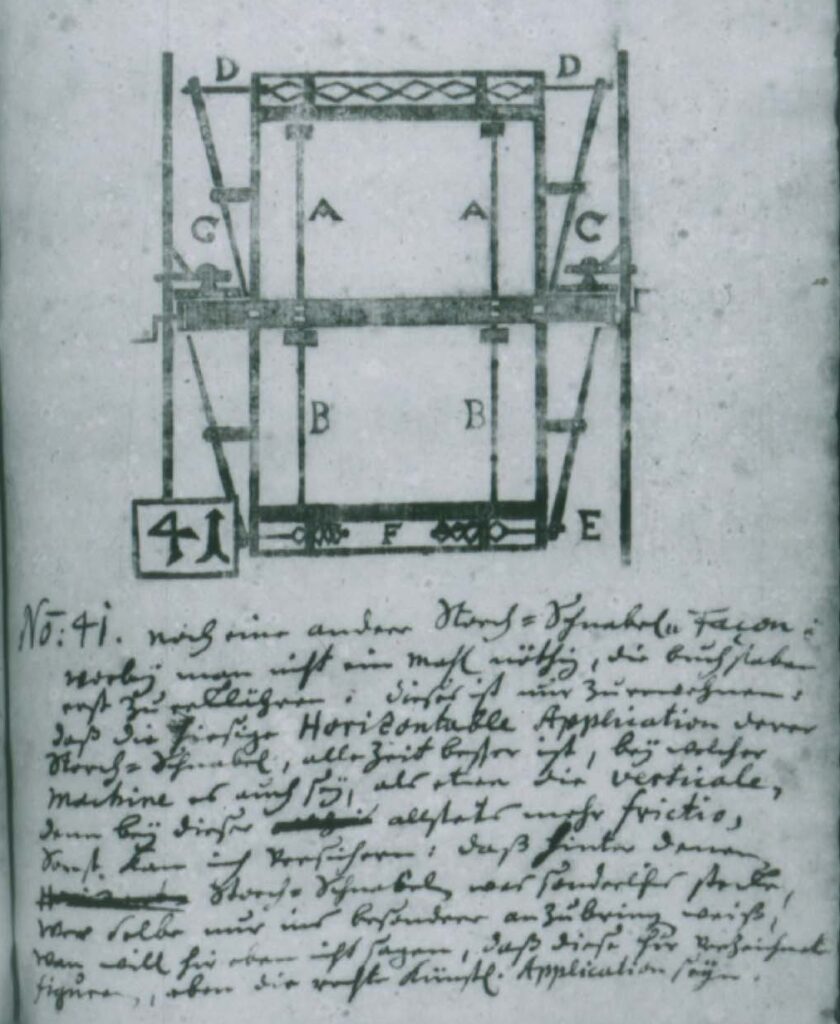 D D
A A
C C
B B
41 F E
No: 41. noch eine andere Storch=Schnabel„ Façon:
worbey man nicht ein mahl nöthig, die buchstaben
erst zu erklähren: dieses ist nur zu erwehnen:
daß die hiesige Horizontable Application derer
Storch=Schnabel, alle Zeit besser ist, bey welcher
machine es auch sey, als etwa die verticale,
denn bey dieser allstets mehr frictio,
sonst kan ich versichern: daß hinter denen
Storch=Schnabeln was sonderliches stecke,
wer selbe nur ins besondere anzubringen weiß,
man will hir eben nicht sagen, daß diese hir verzeichnete
figuren, eben die rechte Künstl. Application seyn.